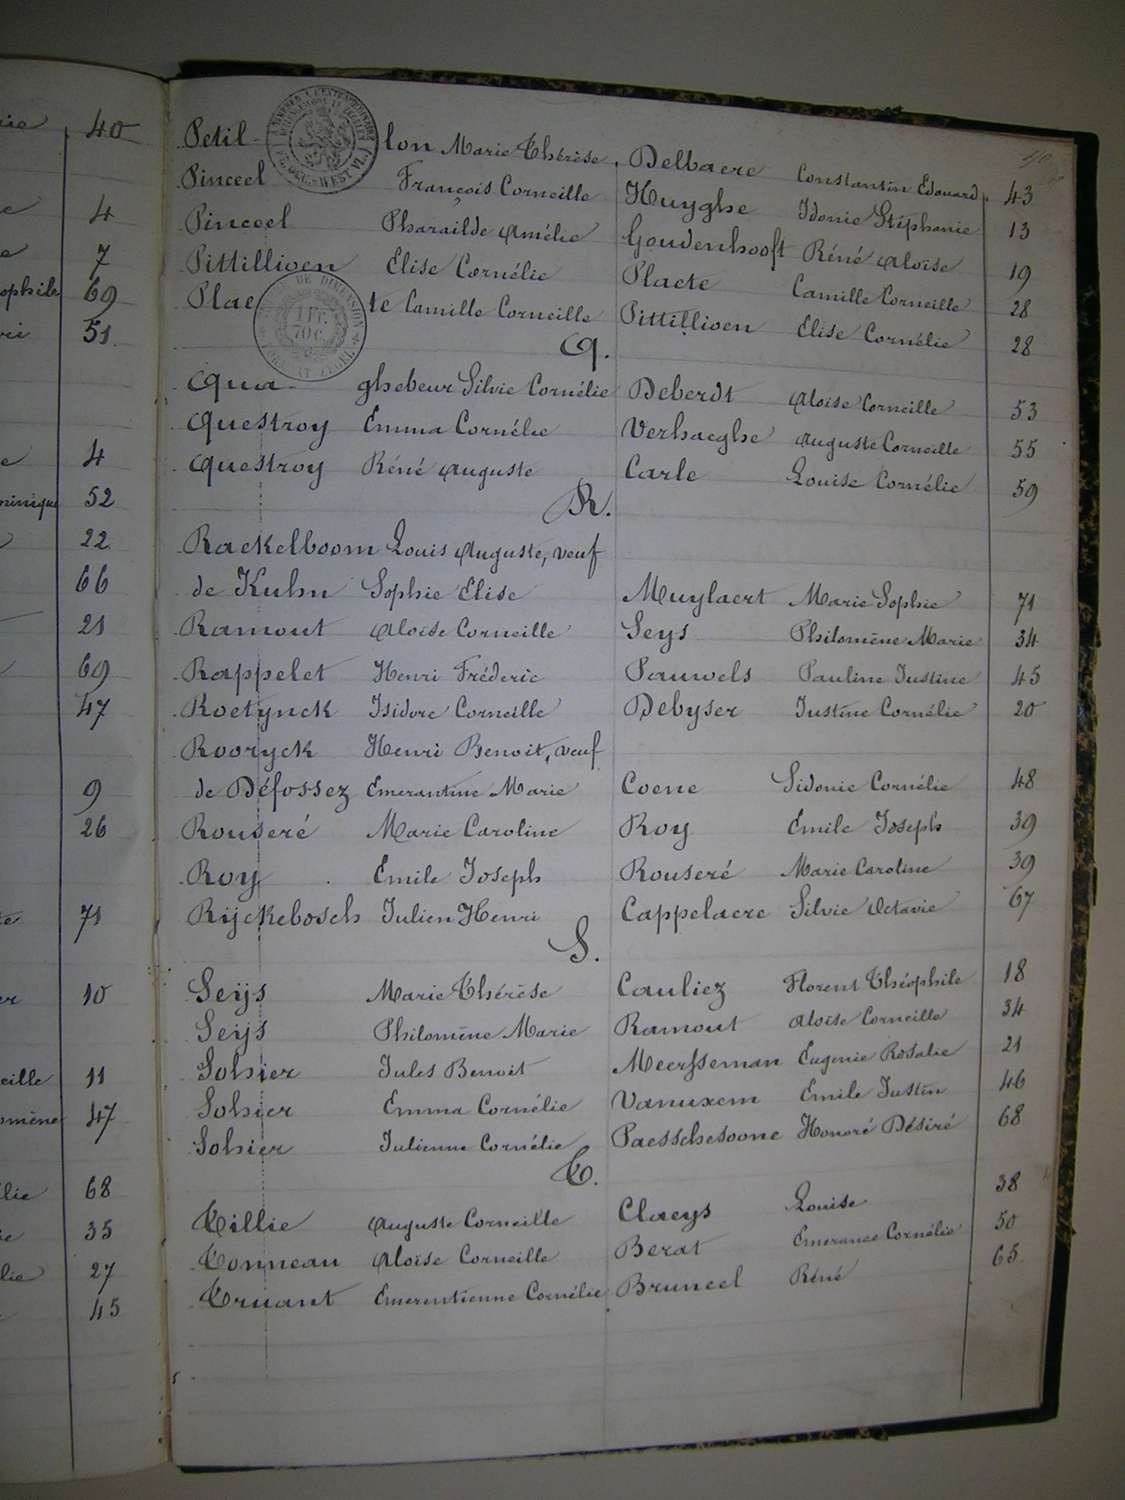 Petillon Marie Thérèse, Delbaere Constantin Edouard 43
Pinceel François Corneille Huyghe Idonie Stéphanie 13
Pinceel Pharaïlde Amélie Goudenhooft Réné Aloïse 19
Pittillioen Elise Cornélie Plaete Camille Corneille 28
Plaete Camille Corneille Pittillioen Elise Cornélie 28
Q.
Quaghebeur Silvie Cornélie Deberdt Aloïse Corneille 53
Questroy Emma Cornélie Verhaeghe Auguste Corneille 55
Questroy Réné Auguste Carle Louise Cornélie 59
R.
Rackelboom Louis Auguste, veuf
de Kuhn Sophie Elise Muylaert Marie Sophie 71
Ramout Aloïse Corneille Seys Philomène Marie 34
Rappelet Henri Fréderic Pauwels Pauline Justine 45
Roetynck Isidore Corneille Debyser Justine Cornélie 20
Rooryck Henri Benoit, veuf
de Défossez Emerantine Marie Coene Sidonie Cornélie 48
Rouseré Marie Caroline Roy Emile Joseph 39
Roy Emile Joseph Rouseré Marie Caroline 39
Rijckebosch Julien Henri Cappelaere Silvie Octavie 67
S.
Seijs Marie Thérèse Cauliez Florent Théophile 18
Seijs Philomène Marie Ramout Aloïse Corneille 34
Sohier Jules Benoit Meersseman Eugenie Rosalie 21
Sohier Emma Cornélie Vanuxem Emile Justin 46
Sohier Julienne Cornélie Paesschesoone Honoré Désiré 68
T.
Tillie Auguste Corneille Claeys Louise 38
Tonneau Aloïse Corneille Berat Emerance Cornélie 50
Truant Emerentienne Cornélie Bruneel Réné 65
40
4
7
69
51
4
52
22
66
21
69
47
9
26
71
10
11
47
68
35
27
45